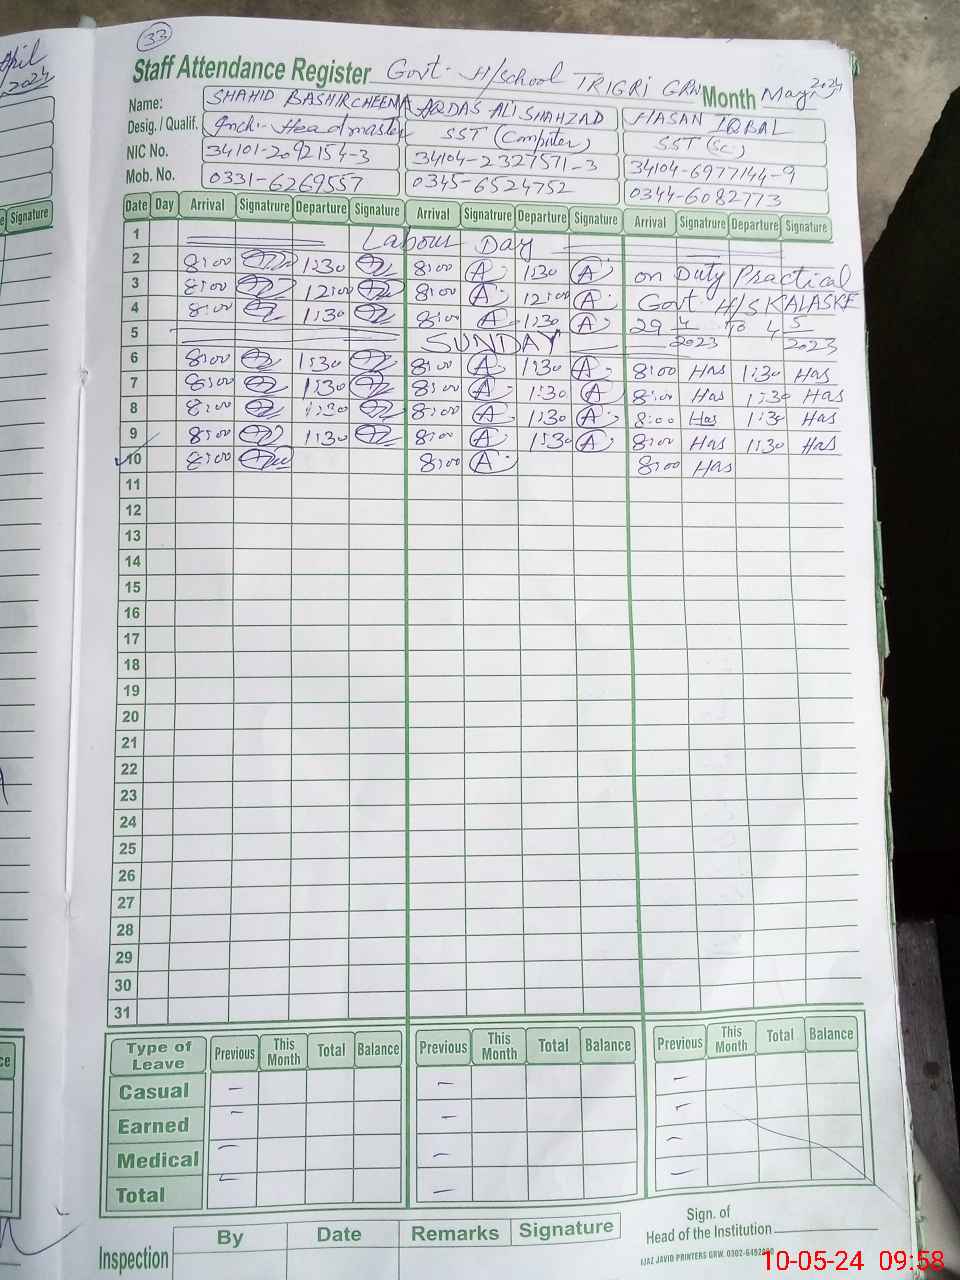 April
2024
Signature
33
Staff Attendance Register Govt. H/School TRIGRI GRW Month May 2024
Name: SHAHID BASHIR CHEEMA AQDAS ALI SHAHZAD HASAN IQBAL
Desig. / Qualif. Inch:- Headmaster SST (Computer) SST (Sc)
NIC No. 34101-2092154-3 34104-2327571-3 34104-6977144-9
Mob. No. 0331-6269557 0345-6524752 0344-6082773
Date Day Arrival Signatrure Departure Signature Arrival Signatrure Departure Signature Arrival Signatrure Departure Signature
1 Labour Day
2 8:00 1:30 8:00 A 1:30 A on Duty Practical
3 8:00 12:00 8:00 A 12:00 A Govt. H/S KALASKE
4 8:00 1:30 8:00 A 1:30 A 29 4/2023 To 4 5/2023
5 SUNDAY
6 8:00 1:30 8:00 A 1:30 A 8:00 Has 1:30 Has
7 8:00 1:30 8:00 A 1:30 A 8:00 Has 1:30 Has
8 8:00 1:30 8:00 A 1:30 A 8:00 Has 1:30 Has
9 8:00 1:30 8:00 A 1:30 A 8:00 Has 1:30 Has
10 8:00 8:00 A 8:00 Has
11
12
13
14
15
16
17
18
19
20
21
22
23
24
25
26
27
28
29
30
31
Type of Leave Previous This Month Total Balance Previous This Month Total Balance Previous This Month Total Balance
Casual - - -
Earned - - -
Medical - - -
Total - - -
Inspection By Date Remarks Signature
Sign. of
Head of the Institution
IJAZ JAVID PRINTERS GRW. 0302-6452
10-05-24 09:58